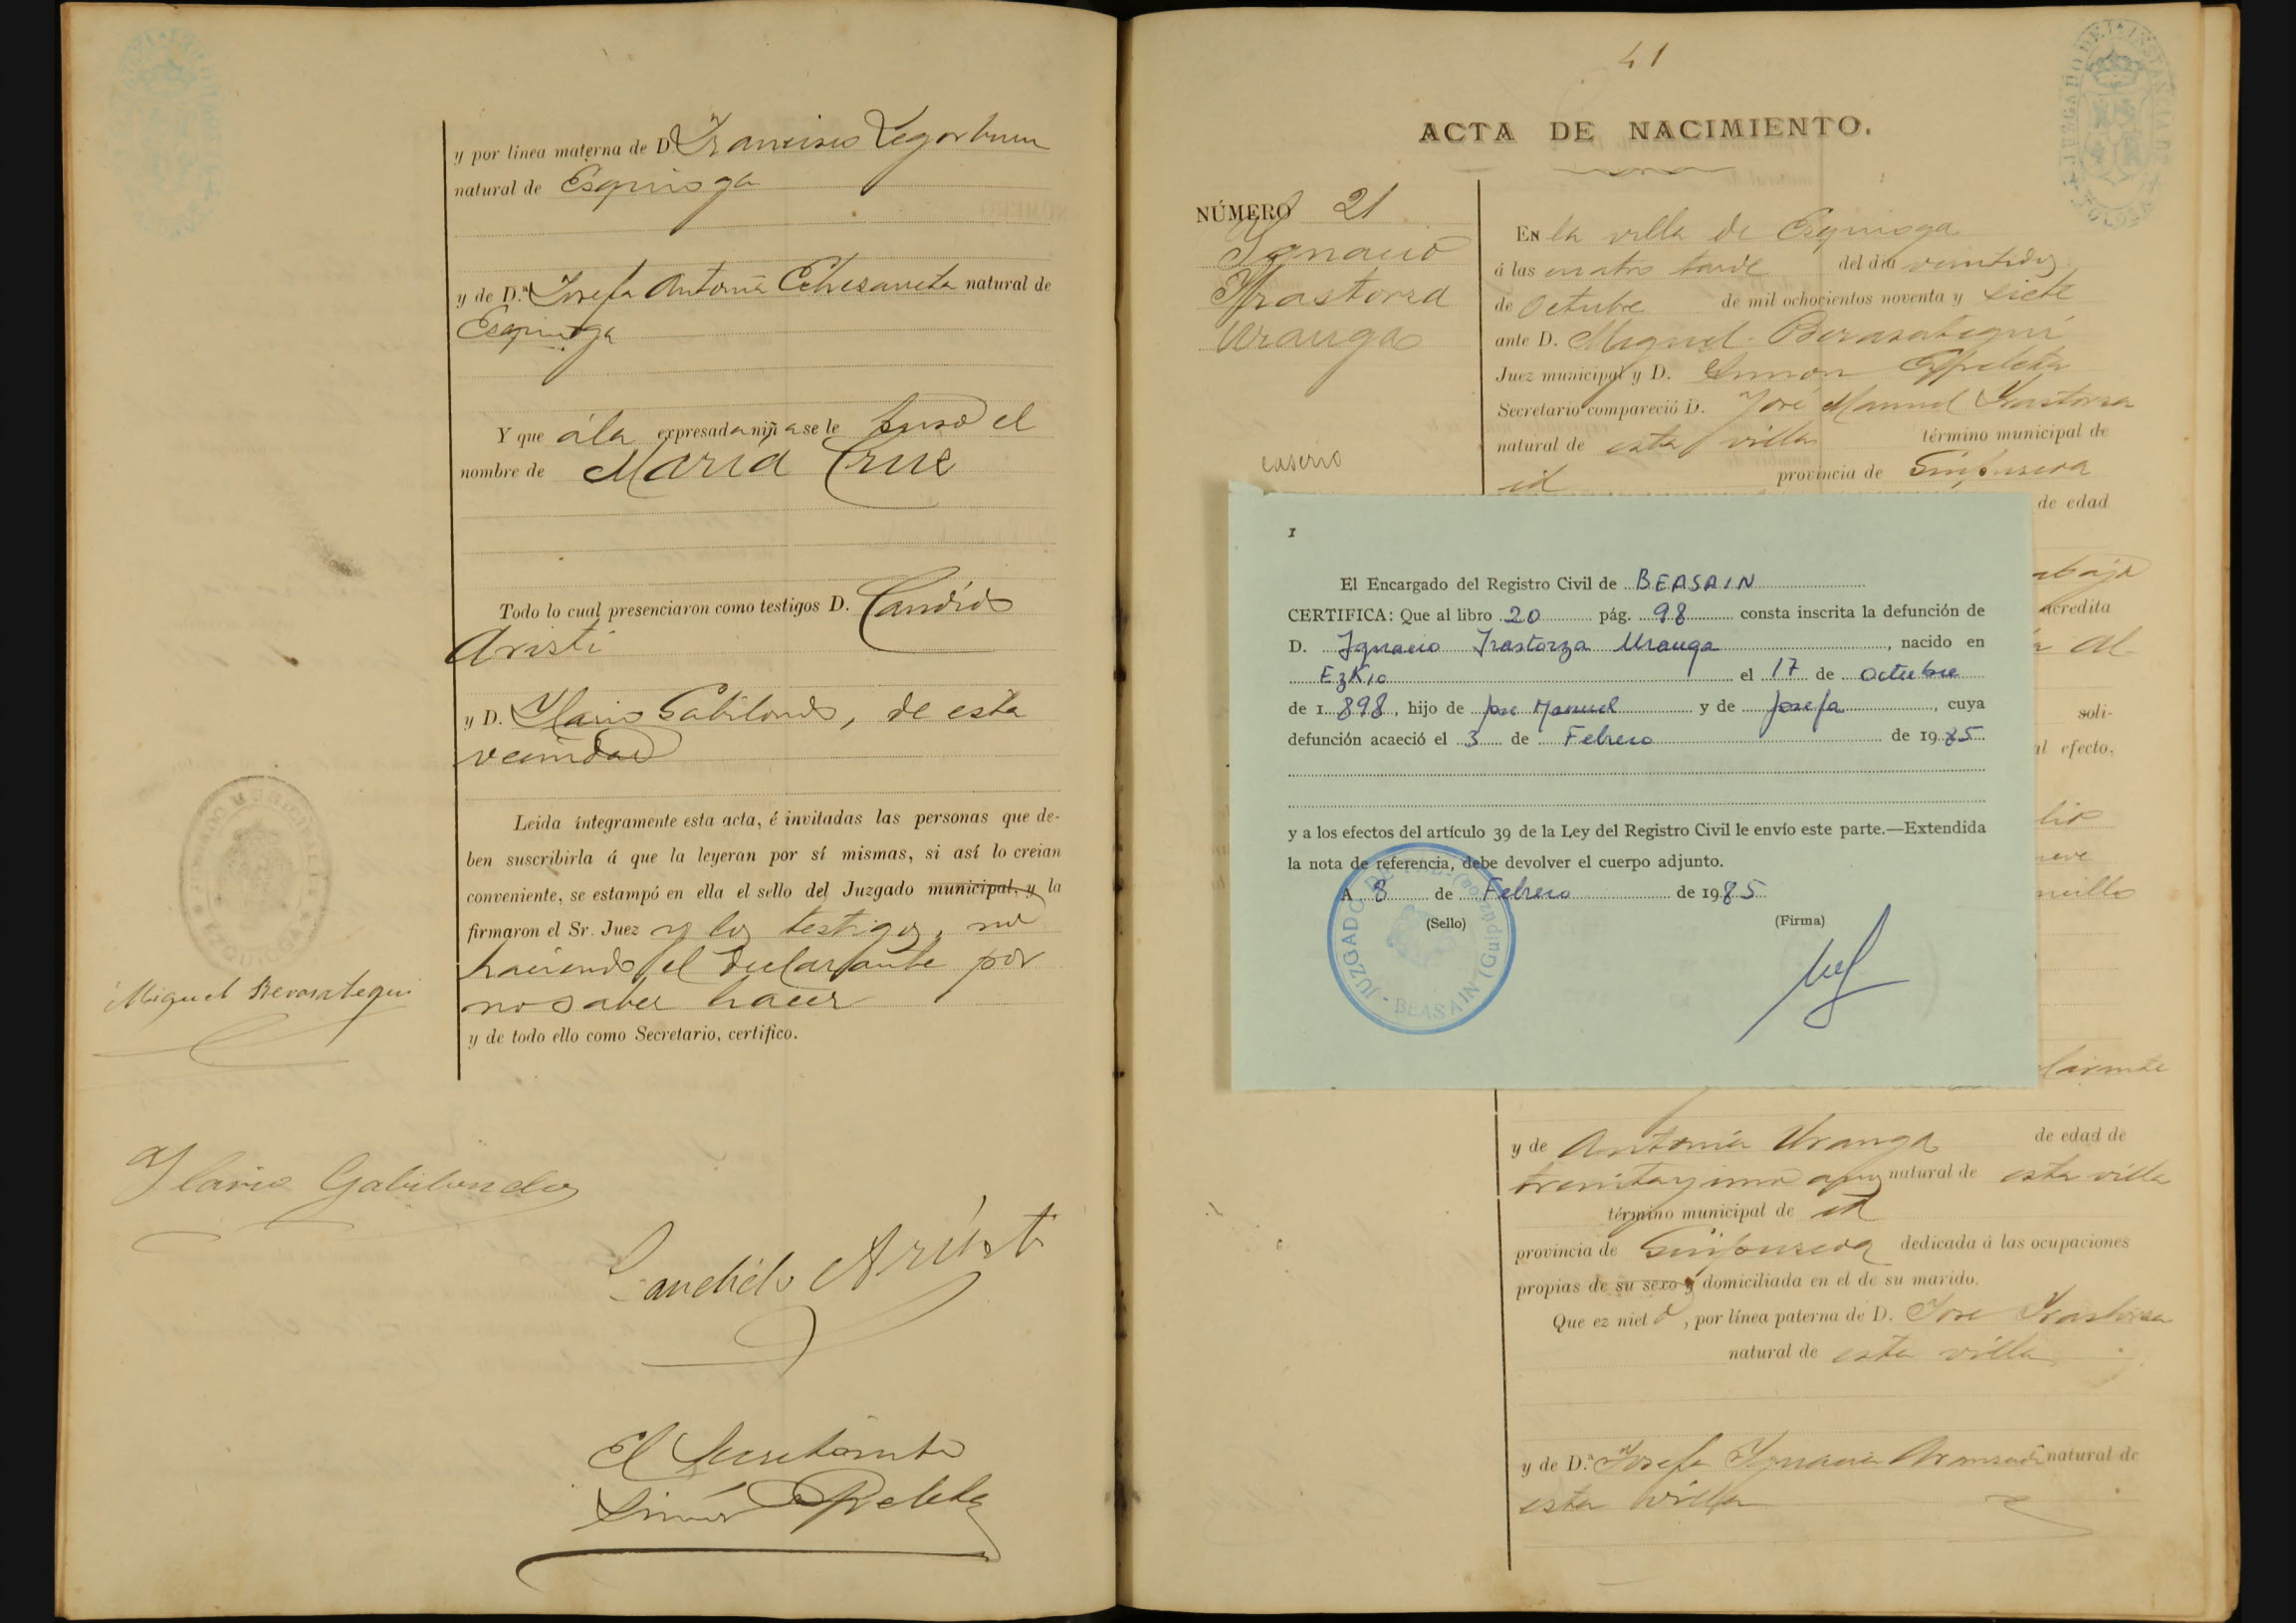 y por línea materna de D Francisco Legorburu
natural de Esquioga
y de D.ª Josefa Antonia Echezarreta natural de
Esquioga
Y que á la expresada niña se le puso el
nombre de María Cruz
Todo lo cual presenciaron como testigos D. Candido
Aristi
y D. Ylario Gabilondo, de esta
vecindad
Leida íntegramente esta acta, é invitadas las personas que de-
ben suscribirla á que la leyeran por sí mismas, si así lo creian
conveniente, se estampó en ella el sello del Juzgado municipal, y la
firmaron el Sr. Juez y los testigos, no
haciendo el declarante por
no saber hacer
y de todo ello como Secretario, certifico.
JUZGADO MUNICIPAL
ESQUIOGA
Miguel Berasategui
Ylario Gabilondo
Candido Aristi
El Secretario
Simón Ezpeleta
41
ACTA DE NACIMIENTO.
NÚMERO 21
Ygnacio
Yrastorza
Uranga
caserio
En la villa de Esquioga
á las cuatro tarde del dia veintidos
de Octubre de mil ochocientos noventa y siete
ante D. Miguel Berasategui
Juez municipal y D. Simon Ezpeleta
Secretario compareció D. José Manuel Yrastorza
natural de esta villa término municipal de
id provincia de Guipuzcoa
de edad
abajo
acredita
al
soli-
al efecto,
lio
nueve
larante
I
El Encargado del Registro Civil de BEASAIN
CERTIFICA: Que al libro 20 pág. 98 consta inscrita la defunción de
D. Ignacio Irastorza Uranga, nacido en
EzKio el 17 de octubre
de 1.898, hijo de Jose Manuel y de Josefa, cuya
defunción acaeció el 3 de Febrero de 1985
y a los efectos del artículo 39 de la Ley del Registro Civil le envío este parte.—Extendida
la nota de referencia, debe devolver el cuerpo adjunto.
A 8 de Febrero de 1985
(Sello) (Firma)
JUZGADO DE PAZ - BEASAIN (Guipúzcoa)
y de Antonia Uranga de edad de
treinta y uno años natural de esta villa
término municipal de id
provincia de Guipuzcoa dedicada á las ocupaciones
propias de su sexo y domiciliada en el de su marido.
Que ez nieto, por línea paterna de D. José Yrastorza
natural de esta villa
y de D.ª Josefa Ygnacia natural de
esta villa